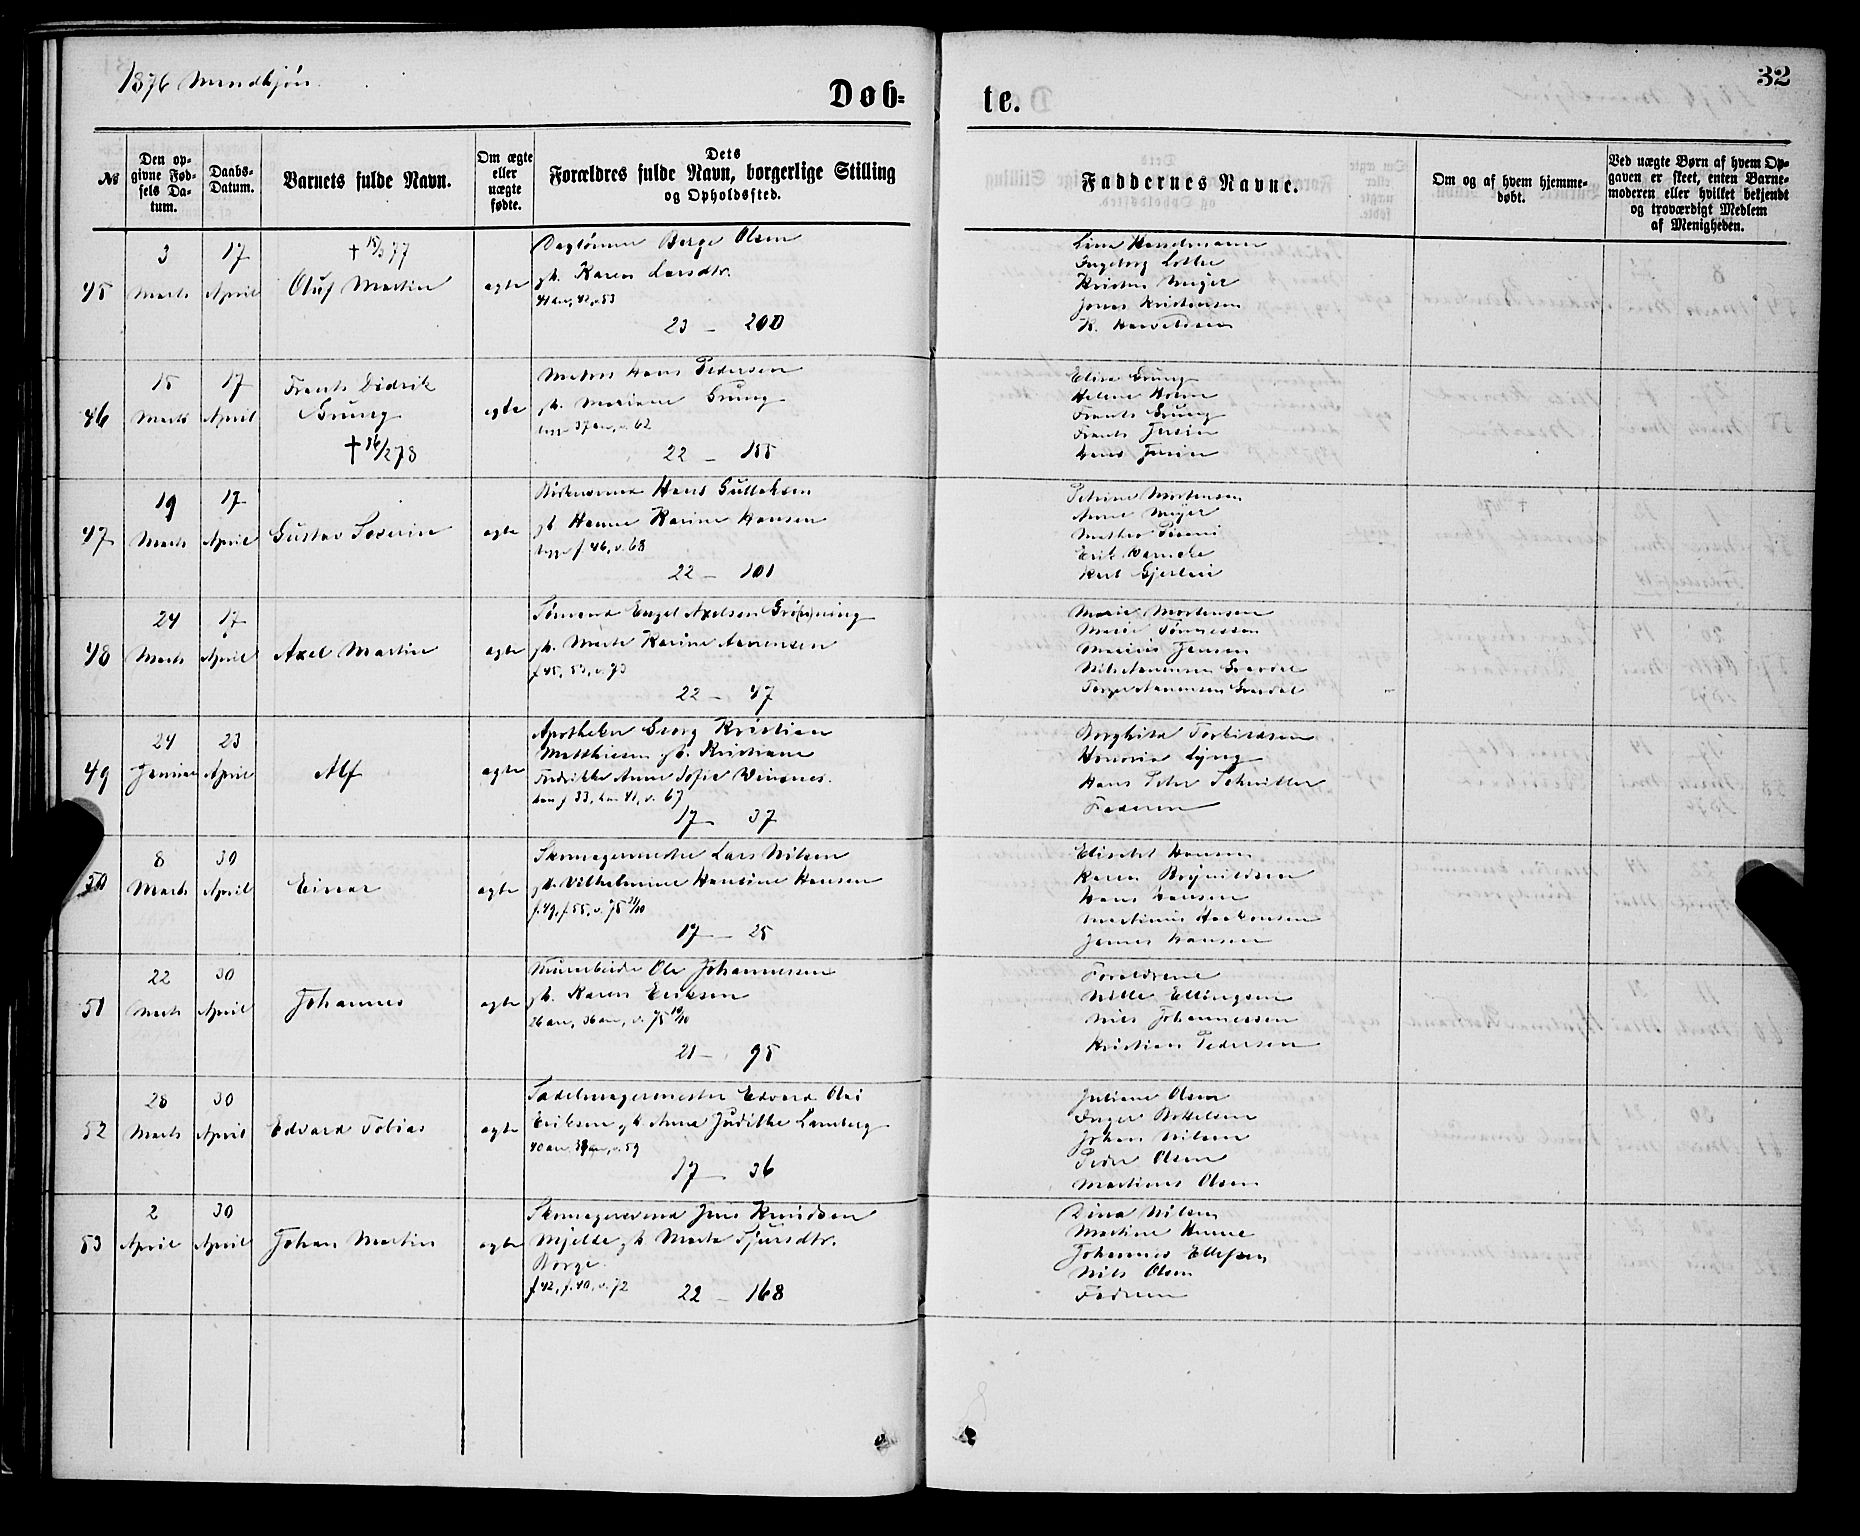 1876 Mandkjön
32
Døb=
te.
№
Den op-
givne Fød-
sels Da-
tum.
Daabs-
Datum.
Barnets fulde Navn.
Om ægte
eller
uægte
fødte.
Dets
Forældres fulde Navn, borgerlige Stilling
og Opholdssted.
Faddernes Navne.
Om og af hvem hjemme-
døbt.
Ved uægte Børn af hvem Op-
gaven er skeet, enten Barne-
moderen eller hvilket bekjendt
og troværdigt Medlem
af Menigheden.
45
3
Marts
17
April
† 15/3 77
Oluf Martin
ægte
Daglönner Berge Olsen
gh. Karen Larsdtr.
23 – 200
Ingeborg Lothe
Kristine Meyer
Jonas Kristensen
46
15
Marts
17
April
Frants Didrik
Grung
† 16/2 78
ægte
Matros Hans Pedersen
gh. Mariane Grung
22 – 155
Elisa Grung
Helene Holm
Frants Grung
47
19
Marts
17
April
Gustav Severin
ægte
Hans Gullaksen
gh. Hanne Karine Hansen
f 46, v. 68
22 – 101
Petrine Mortensen
Anne Meyer
Erik Warncke
48
24
Marts
17
April
Axel Martin
ægte
Sömand Engel Axelsen Grö(n)ning
gh. Marte Karine Aanensen
f 45, 53, v. 73
22 – 47
Marie Mortensen
Marie Tönnessen
Marius Jensen
49
24
Januar
23
April
Alf
ægte
Apotheker Georg Kristian
Matthiesen gh. Kristiane
Fredrikke Anna Sofie Wesenes.
han f 33, hun 41, v. 67
17 – 37
Borghild Torkildsen
Honoria Lyng
Hans Peter Schnitler
Faderen
50
8
Marts
30
April
Einar
ægte
Skomagermester Lars Nilsen
gh. Vilhelmine Hansine Hansen
f. 49, f 55, v. 75
17 – 25
Elisabet Hansen
Karen Brynildsen
Hans Hansen
Martinus Haakonsen
James Hansen
51
22
Marts
30
April
Johannes
ægte
Ole Johannessen
gh. Karen Eriksen
26 an, 36 an, v. 75 10/10
21 – 95
Forældrene
Nille Ellingsen
Nils Johannessen
Kristian Pedersen
52
28
Marts
30
April
Edvard Tobias
ægte
Sadelmagermester Edvard Olai
Eriksen gh. Anna Judithe Lamberg
40 an, 38 an, v. 59
17 – 36
Juliane Olsen
Inger Bottelsen
Johan Nilsen
Peder Olsen
Martinus Olsen
53
2
April
30
April
Johan Martin
ægte
Skomagersvend Jens Knudsen
Mjelde gh. Marta Sjursdtr.
Borge.
f 42, f. 40, v. 72
22 – 168
Dina Nilsen
Martine Hanne
Johannes Ellefsen
Nils Olsen
Faderen